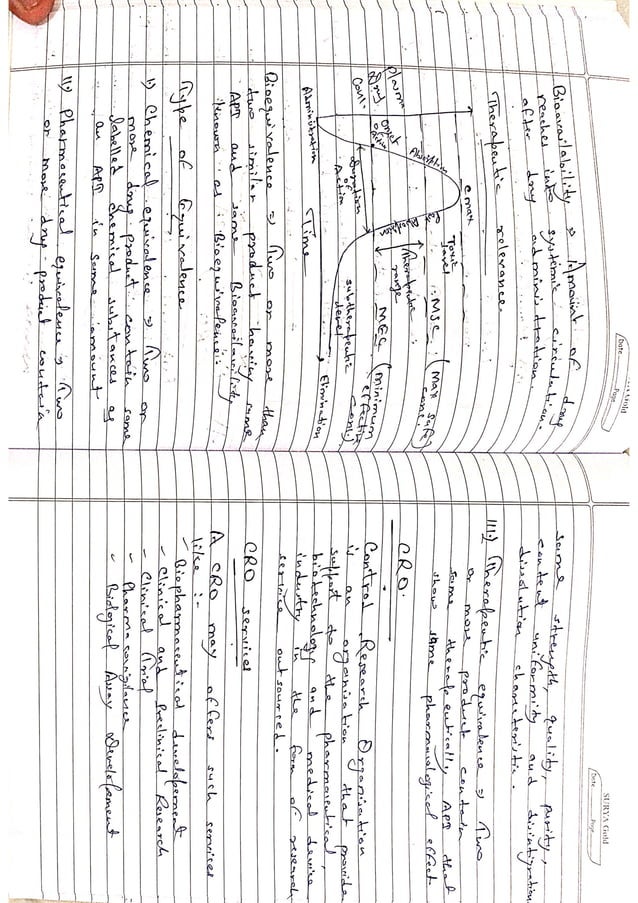 Bioavailability ⇒ Amount of drug
reaches into systemic circulation.
after drug administration
Therapeutic relevance.
Plasma
Drug
Conc.
Onset
of
Absorbtion
C max
Toxic
level
MSC (Max safe
conc.)
Therapeutic
range
MEC (minimum
effective
conc.)
Duration
of
Action
subtherapeutic
level
Administration
Time
Elimination
Bioequivalence ⇒ Two or more than
two similar product having same
API and same Bioavailability
known as Bioequivalence.
Type of Equivalence
i) Chemical equivalence ⇒ Two or
more drug product contain same
labelled chemical substances as
an API in same amount
ii) Pharmaceutical equivalence ⇒ Two
or more drug product contain
Date
Page
same strength, quality, purity,
content uniformity and disintigration
dissolution characteristic.
iii) Therapeutic equivalence ⇒ Two
or more product contain
same therapeutically API that
show same pharmacological effect
CRO.
Control Research Organisation
is an organisation that provide
support to the pharmaceutical,
biotechnology and medical device
industry in the form of research
service outsourced.
CRO services
A CRO may offers such services
like :-
- Biopharmaceutical developement
- Clinical and Preclinical Research
- Clinical Trial
- Pharmacovigilance
- Biological Assay Developement
SURYA Gold
Date
Page